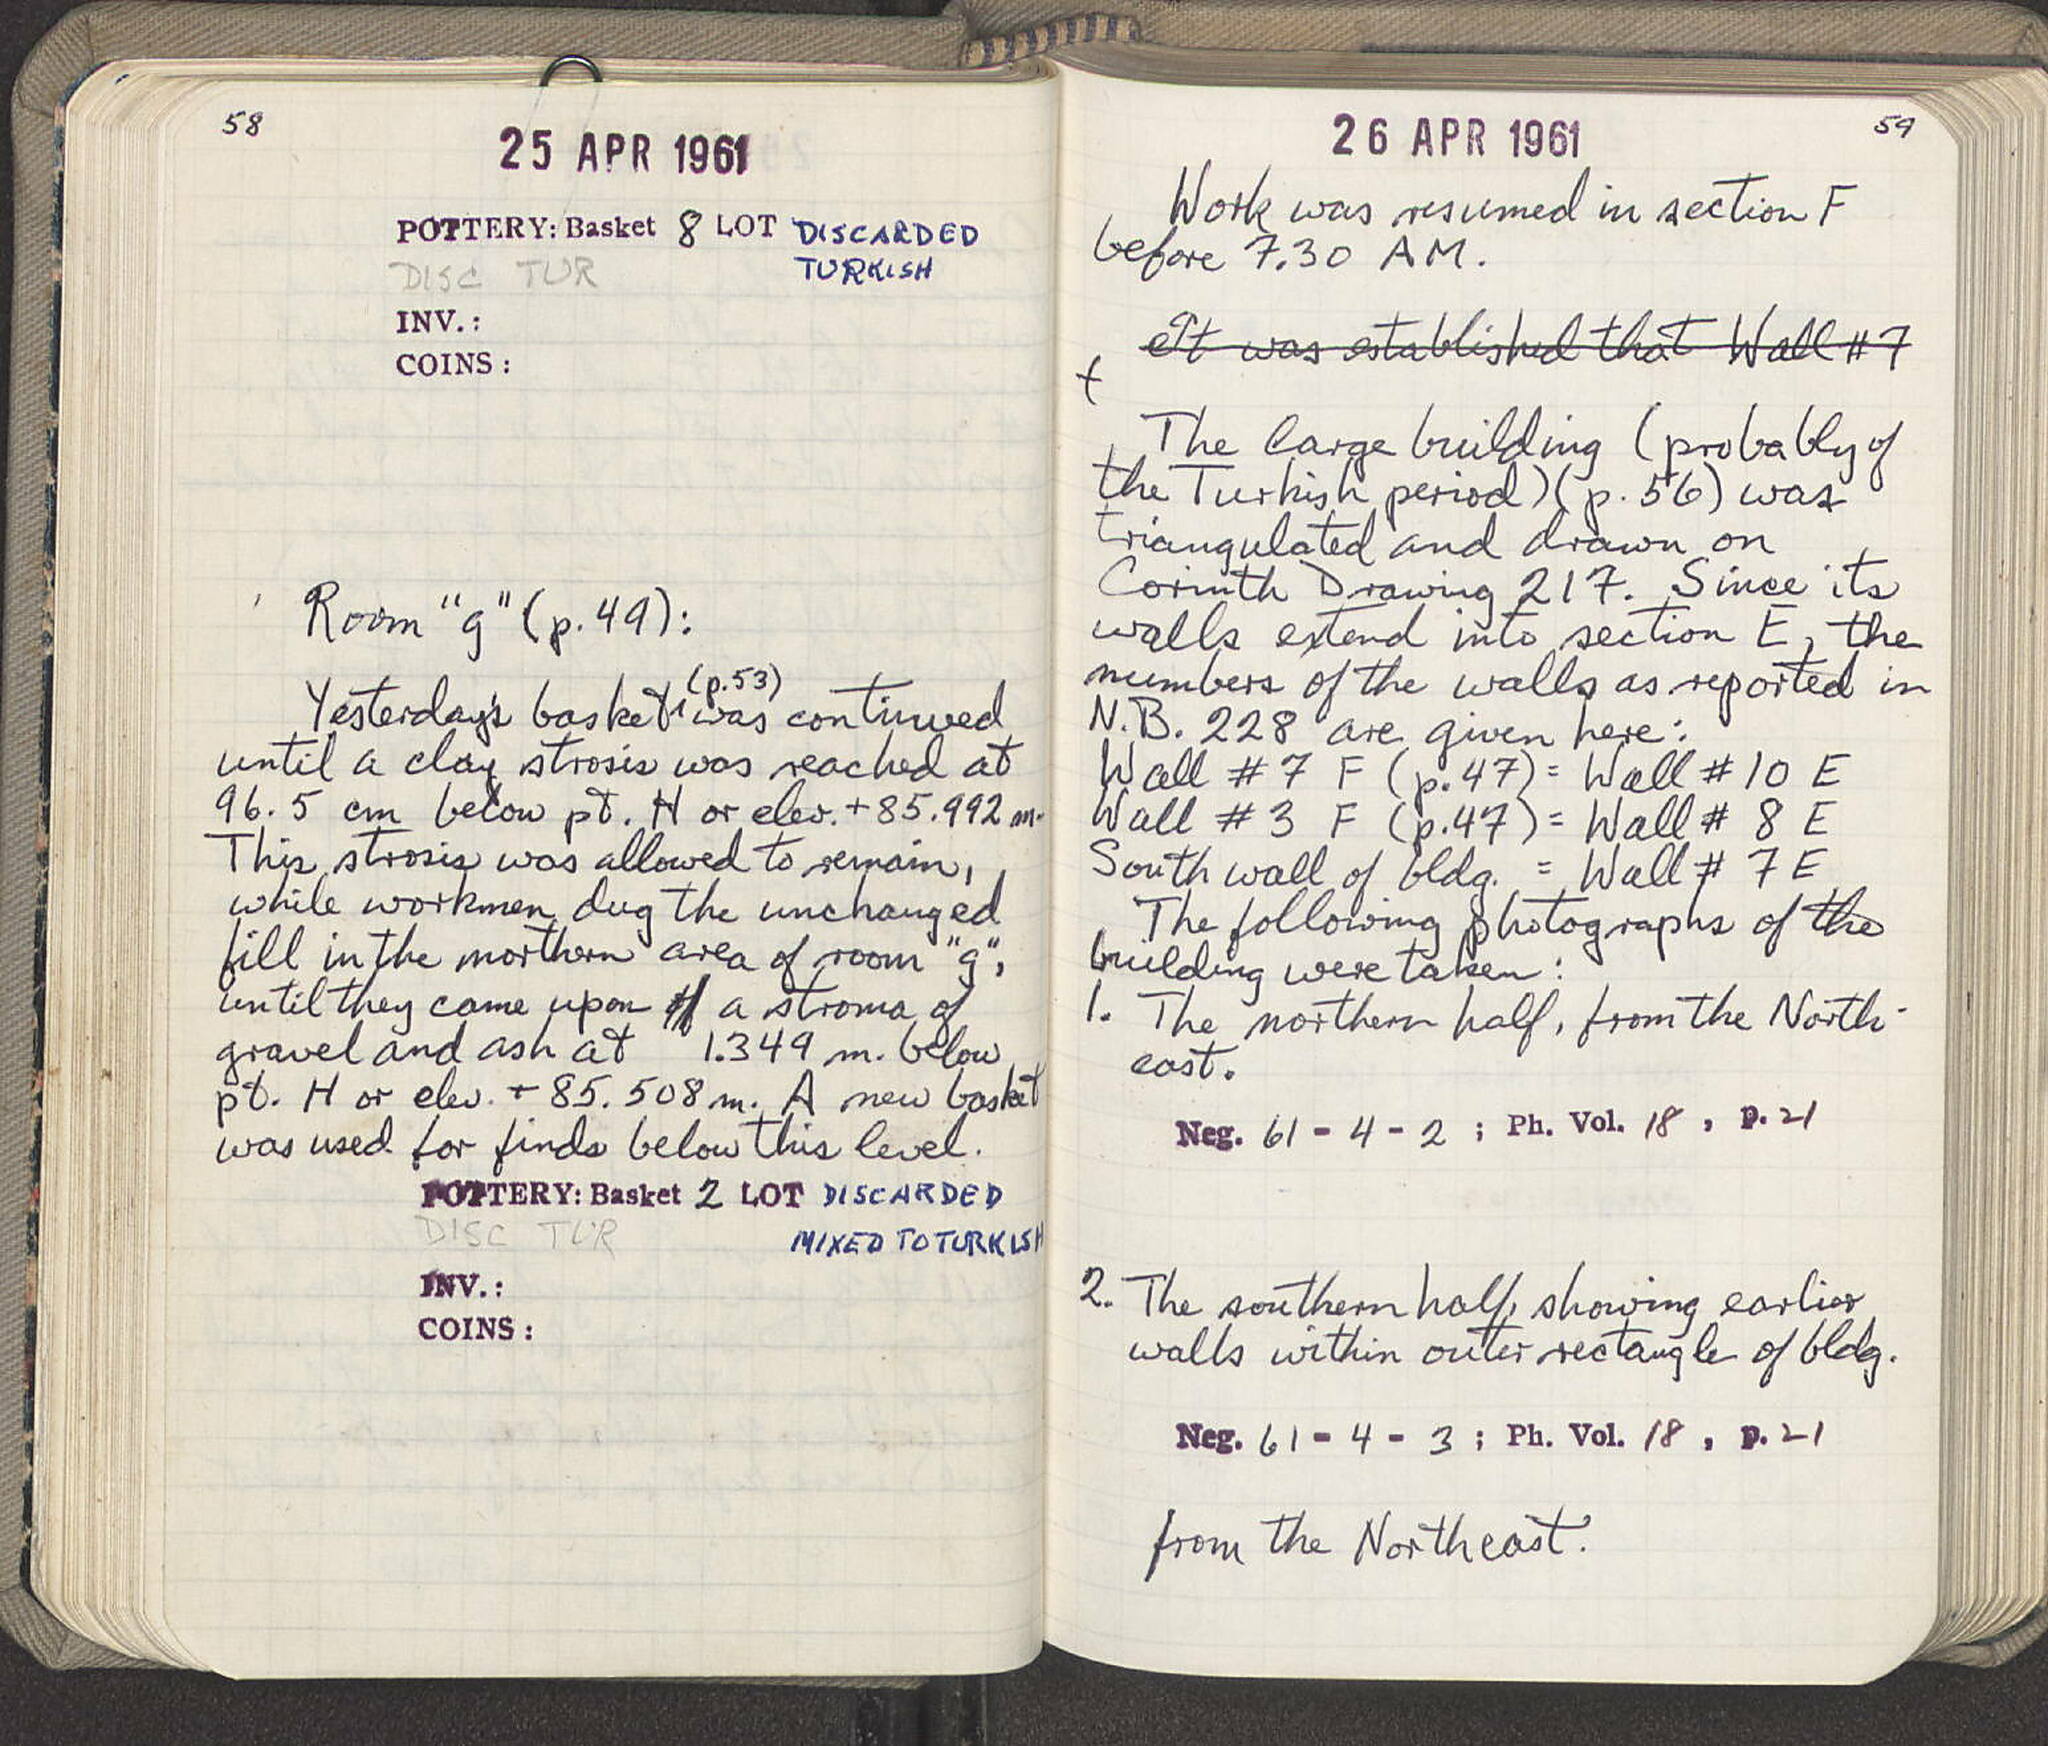 58
25 APR 1961
POTTERY: Basket 8 LOT DISCARDED
TURKISH
DISC TUR
INV.:
COINS:
Room "g" (p.49):
(p.53)
Yesterday's basket was continued
until a clay strosis was reached at
96.5 cm below pt. H or elev. +85.992 m.
This strosis was allowed to remain,
while workmen dug the unchanged
fill in the northern area of room "g",
until they came upon a stroma of
gravel and ash at 1.349 m. below
pt. H or elev. +85.508 m. A new basket
was used for finds below this level.
POTTERY: Basket 2 LOT DISCARDED
DISC TUR MIXED TO TURKISH
INV.:
COINS:
26 APR 1961
59
Work was resumed in section F
before 7.30 AM.
It was established that Wall #7
The large building (probably of
the Turkish period) (p.56) was
triangulated and drawn on
Corinth Drawing 217. Since its
walls extend into section E, the
numbers of the walls as reported in
N.B. 228 are given here:
Wall #7 F (p.47) = Wall #10 E
Wall #3 F (p.47) = Wall # 8 E
South wall of bldg. = Wall # 7 E
The following photographs of the
building were taken:
1. The northern half, from the North-
east.
Neg. 61-4-2; Ph. Vol. 18, p. 21
2. The southern half, showing earlier
walls within outer rectangle of bldg.
Neg. 61-4-3; Ph. Vol. 18, p. 21
from the Northeast.